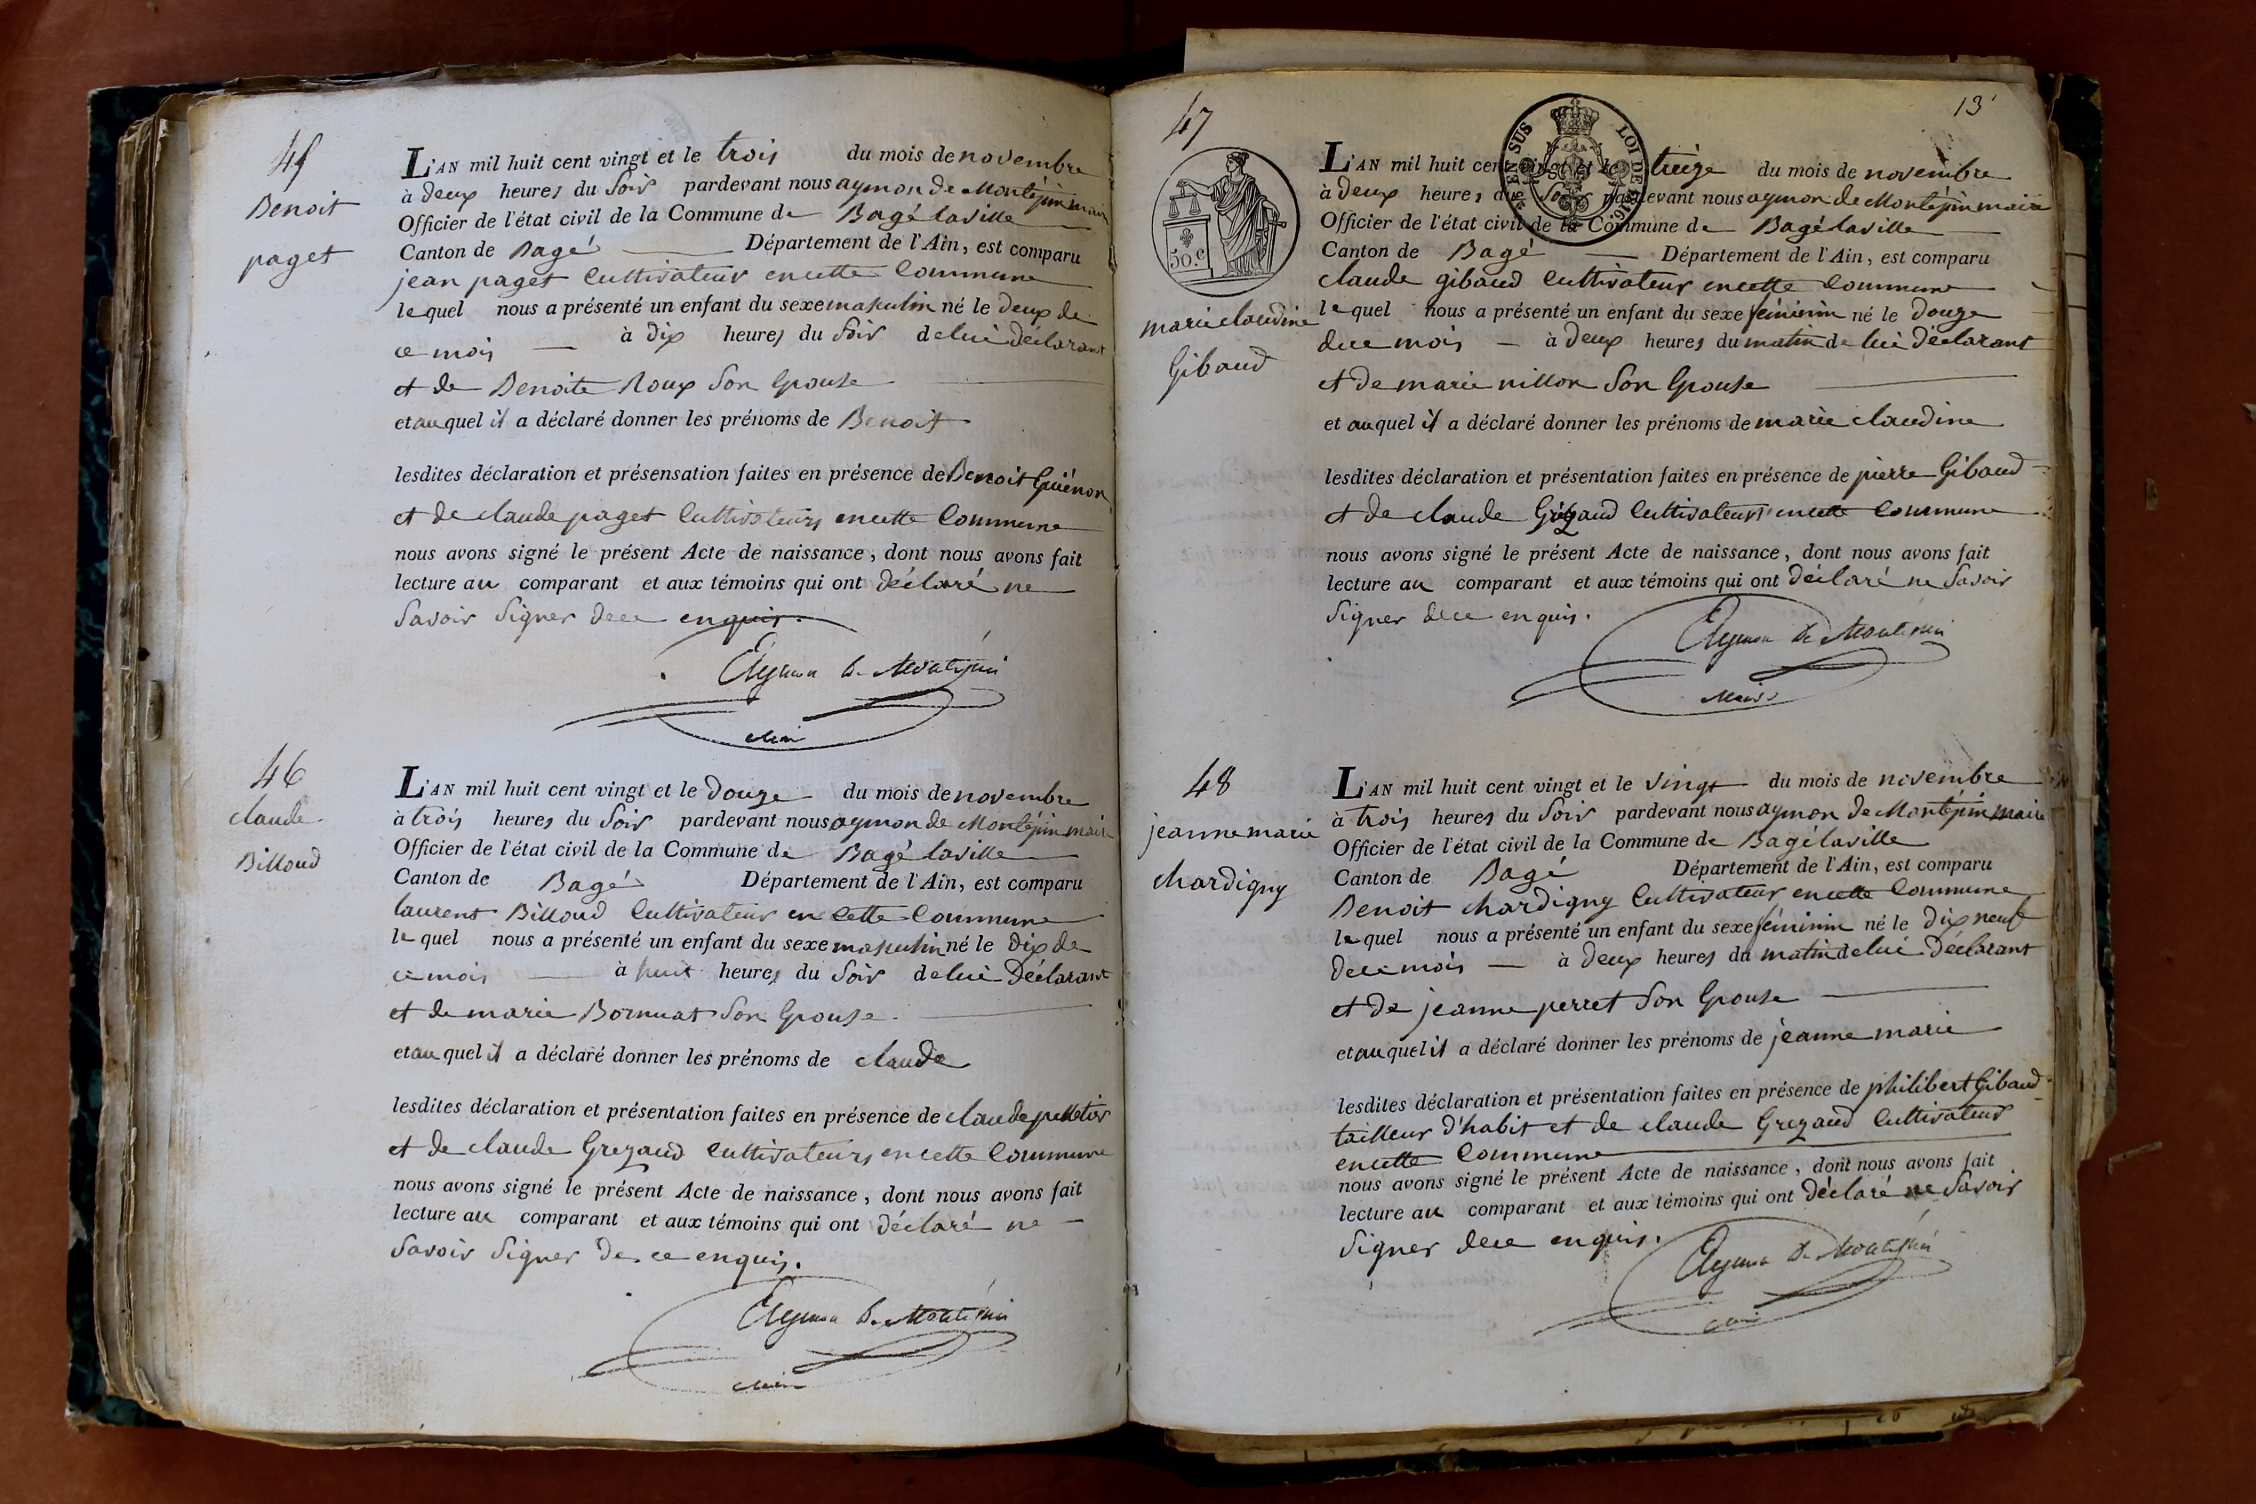 45
Benoit
paget
L'AN mil huit cent vingt et le trois du mois de novembre
à deux heures du Soir pardevant nous aymon de Montépin maire
Officier de l'état civil de la Commune de Bagé laville
Canton de Bagé Département de l'Ain, est comparu
jean paget Cultivateur encette Commune
lequel nous a présenté un enfant du sexe masculin né le deux de
ce mois à dix heures du Soir de lui déclarant
et de Benoite Roux Son Epouse
et auquel il a déclaré donner les prénoms de Benoit
lesdites déclaration et présensation faites en présence de Benoit Guénon
et de claude paget Cultivateurs encette Commune
nous avons signé le présent Acte de naissance, dont nous avons fait
lecture au comparant et aux témoins qui ont déclaré ne
Savoir Signer dece enquis.
Aymon de Montépin
Maire
46
claude
Billoud
L'AN mil huit cent vingt et le douze du mois de novembre
à trois heures du Soir pardevant nous aymon de Montépin maire
Officier de l'état civil de la Commune de Bagé laville
Canton de Bagé Département de l'Ain, est comparu
laurent Billoud Cultivateur en Cette Commune
lequel nous a présenté un enfant du sexe masculin né le dix de
ce mois à huit heures du Soir de lui Déclarant
et de marie Bornuat Son Epouse
et auquel il a déclaré donner les prénoms de claude
lesdites déclaration et présentation faites en présence de claude pelletier
et de claude Grezaud Cultivateurs encette Commune
nous avons signé le présent Acte de naissance, dont nous avons fait
lecture au comparant et aux témoins qui ont déclaré ne
Savoir Signer de ce enquis.
Aymon de Montépin
Maire
13
47
EN SUS
LOI DE 1816.
50.c
marie claudine
Gibaud
L'AN mil huit cent vingt et le treize du mois de novembre
à deux heures du Soir pardevant nous aymon de Montépin maire
Officier de l'état civil de la Commune de Bagé laville
Canton de Bagé Département de l'Ain, est comparu
claude gibaud Cultivateur encette Commune
lequel nous a présenté un enfant du sexe féminin né le douze
dece mois à deux heures du matin de lui déclarant
et de marie nillon Son Epouse
et auquel il a déclaré donner les prénoms de marie claudine
lesdites déclaration et présentation faites en présence de pierre Gibaud
et de claude Grezaud Cultivateurs encette Commune
nous avons signé le présent Acte de naissance, dont nous avons fait
lecture au comparant et aux témoins qui ont déclaré ne Savoir
Signer dece enquis.
Aymon de Montépin
Maire
48
jeanne marie
chardigny
L'AN mil huit cent vingt et le vingt du mois de novembre
à trois heures du Soir pardevant nous aymon de Montépin maire
Officier de l'état civil de la Commune de Bagé laville
Canton de Bagé Département de l'Ain, est comparu
Benoit chardigny Cultivateur encette Commune
lequel nous a présenté un enfant du sexe féminin né le dix neuf
dece mois à deux heures du matin de lui Déclarant
et de jeanne perret Son Epouse
et auquel il a déclaré donner les prénoms de jeanne marie
lesdites déclaration et présentation faites en présence de philibert Gibaud
tailleur d'habit et de claude Grezaud Cultivateur
encette Commune
nous avons signé le présent Acte de naissance, dont nous avons fait
lecture au comparant et aux témoins qui ont déclaré ne Savoir
Signer dece enquis.
Aymon de Montépin
Maire